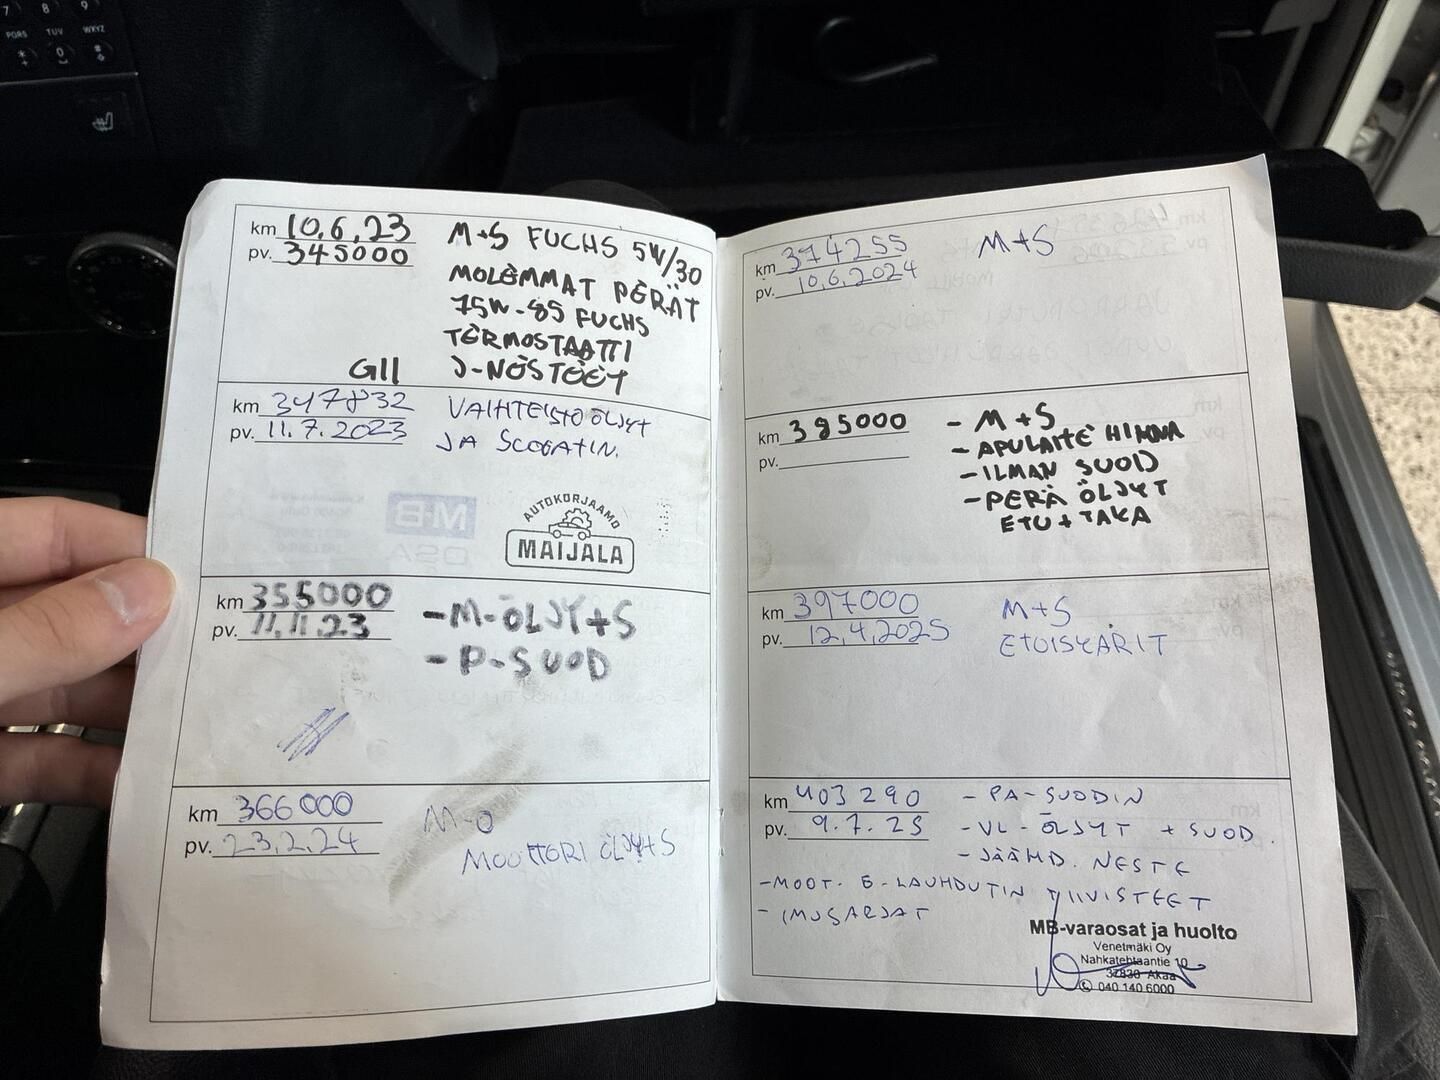 7 8 9
PQRS TUV WXYZ
* 0 #
km 10.6.23
pv. 345000
M+S FUCHS 5W/30
MOLEMMAT PERÄT
75W-85 FUCHS
TERMOSTAATTI
J-NESTEET
G11
km 347832
pv. 11.7.2023
VAIHTEISTOÖLJYT
JA SUODATIN.
AUTOKORJAAMO
MAIJALA
km 355000
pv. 11.11.23
-M-ÖLJY+S
-P-SUOD
km 366000
pv. 23.2.24
M-O
MOOTTORI ÖLJY+S
km 374255
pv. 10.6.2024
M+S
km 385000
pv.
- M+S
- APULAITE HIHNA
- ILMAN SUOD
- PERÄ ÖLJYT
ETU + TAKA
km 397000
pv. 12.4.2025
M+S
ETUISKARIT
km 403290
pv. 9.7.25
- PA-SUODIN
- VL-ÖLJYT + SUOD.
- JÄÄHD. NESTE
- MOOT. Ö-LAUHDUTIN TIIVISTEET
- IMUSARJAT
MB-varaosat ja huolto
Venetmäki Oy
Nahkatehtaantie 10
37830 Akaa
040 140 6000